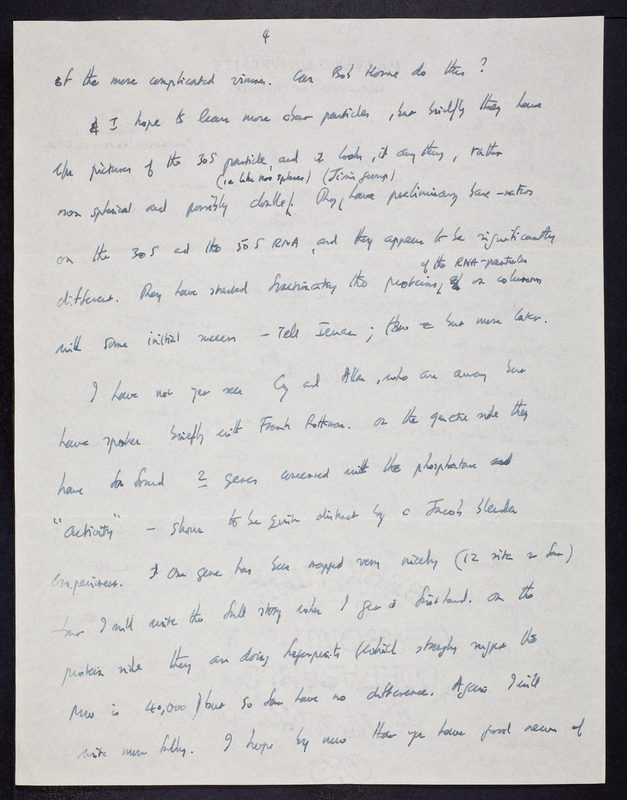 4
of the more complicated viruses. Can Bob Horne do this?
I hope to learn more about particles, but briefly they have
E/M pictures of the 30S particle, and it looks, if anything, rather
(ie like two spheres) (Jim's group)
non spherical and possibly double. They have preliminary base-ratios
on the 30S and the 50S RNA, and they appear to be significantly
of the RNA-particles
different. They have started fractionating the proteins, on columns
with some initial success - Tell Ieuan; but more later.
I have not yet seen Cy and Allan, who are away but
have spoken briefly with Frank Rothman. On the genetic side they
have so far found 2 genes concerned with the phosphatase
"activity" - shown to be quite distinct by a Jacob blender
experiment. One gene has been mapped very nicely (12 sites so far)
but I will write the full story when I get it firsthand. On the
protein side they are doing fingerprints (which strongly suggest the
MW is 40,000) but so far have no difference. Again I will
write more fully. I hope by now that you have good news of